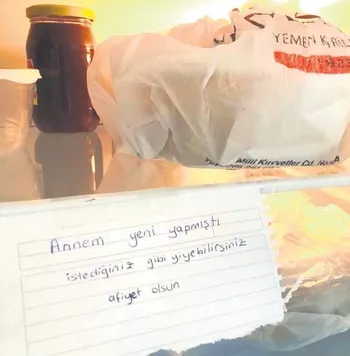 YEMEN K
Milli Kuvvetler Cd. No
Annem yeni yapmıştı
istediğiniz gibi yiyebilirsiniz
afiyet olsun